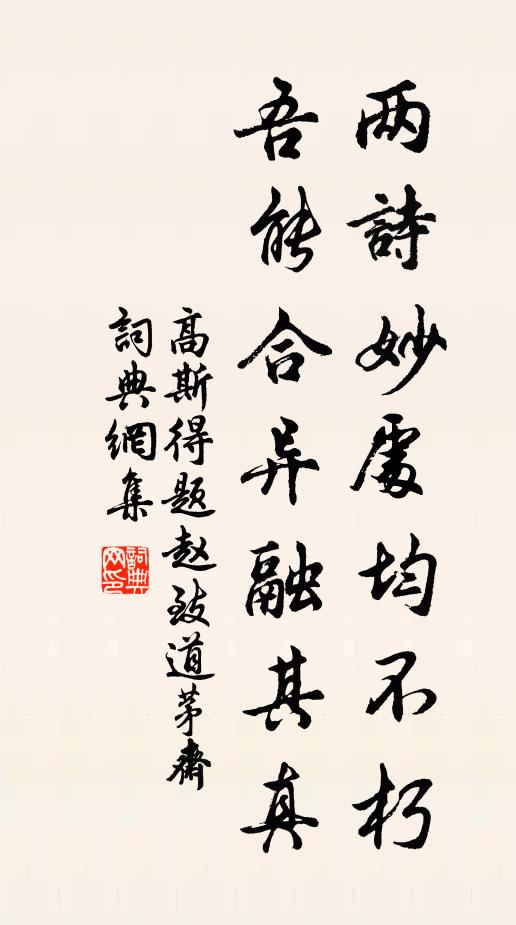 两詩妙處均不朽
吾能合异融其真
高斯得题赵致道茅齋
詞典網集
詞典网印